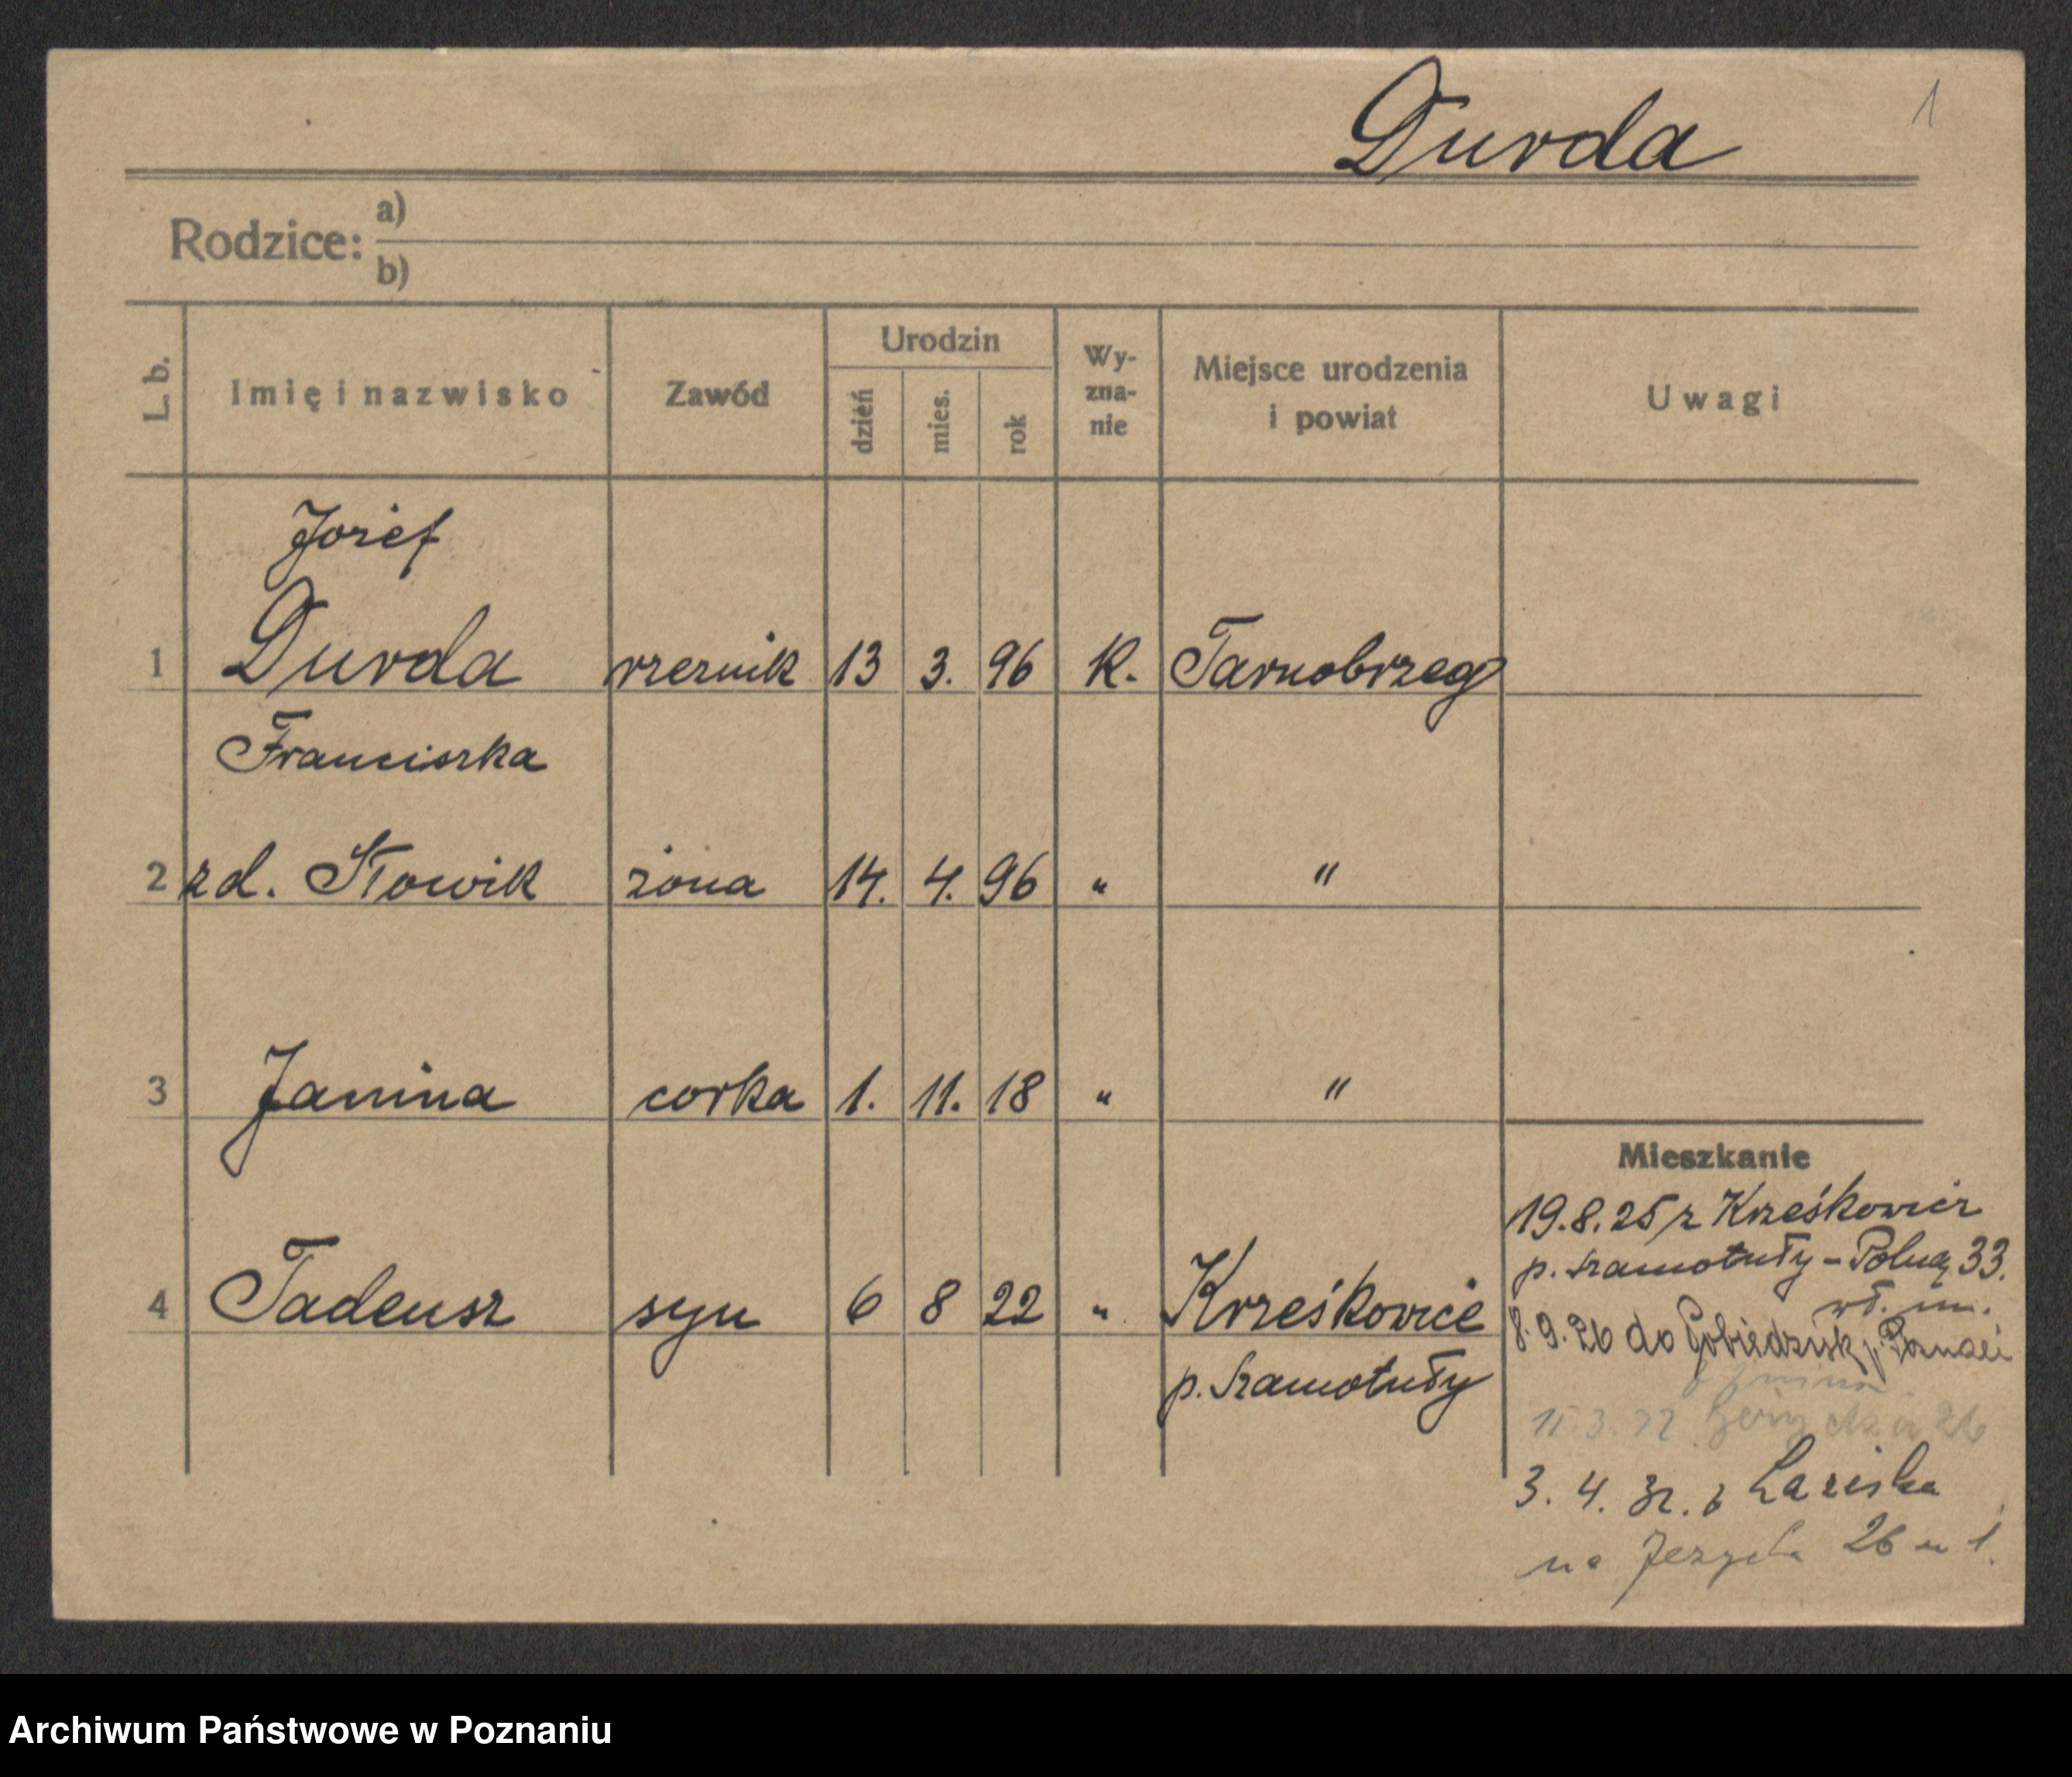 Durda
1
Rodzice: a)
b)
L. b.
Imię i nazwisko
Zawód
Urodzin
dzień
mies.
rok
Wy-
zna-
nie
Miejsce urodzenia
i powiat
Uwagi
Jozef
1 Durda rzeznik 13 3. 96 K. Tarnobrzeg
Franciszka
2 zd. Słowik żona 14. 4. 96 " "
3 Janina corka 1. 11. 18 " "
Mieszkanie
19.8.25 z Krześkowic
p. Szamotuły - Polną 33.
4 Tadeusz syn 6 8 22 " Krześkowice
8.9.26 do p. Poznań
p. Szamotuły
3. 4. 32. z Laziska
na 26 m 1.
Archiwum Państwowe w Poznaniu